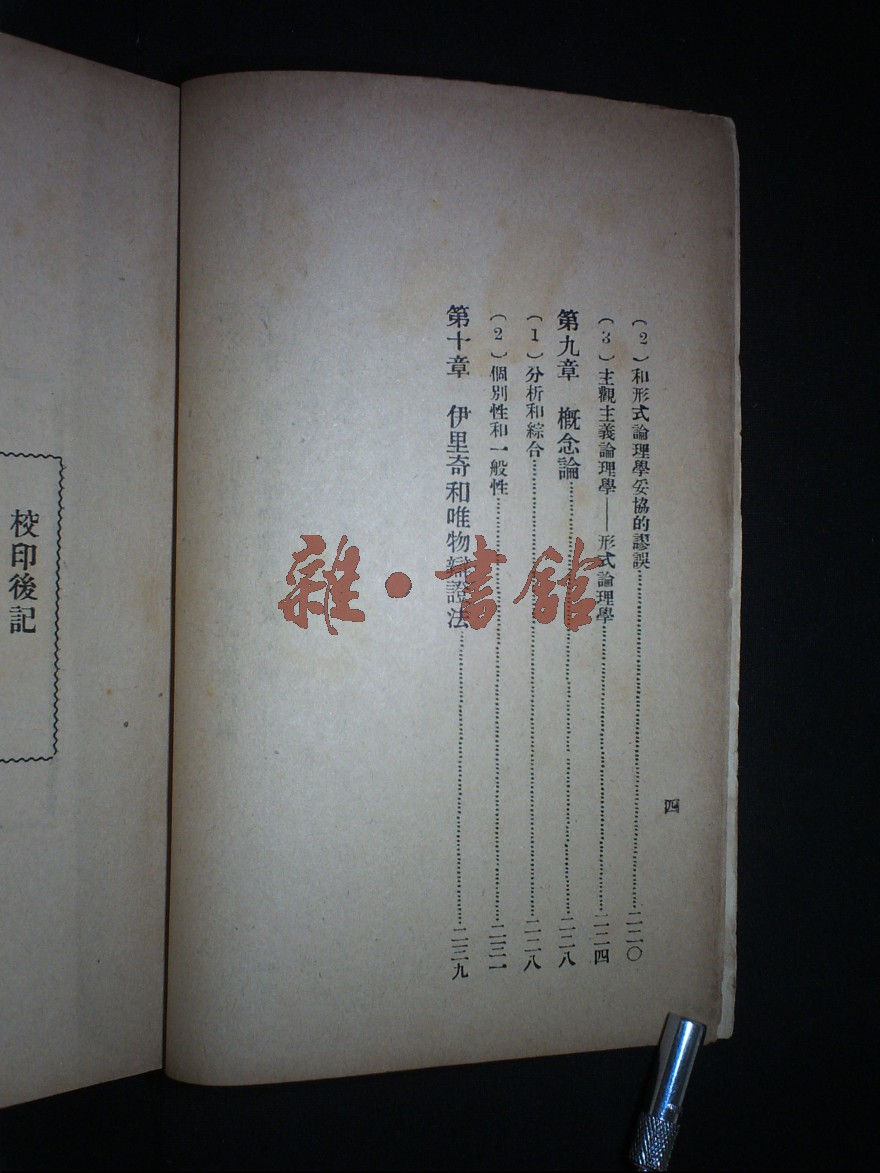 (2)和形式論理學妥協的謬誤……二二〇
(3)主觀主義論理學——形式論理學……二二四
第九章 概念論……二二八
(1)分析和綜合……二二八
(2)個別性和一般性……二三一
第十章 伊里奇和唯物辯證法……二三九
四
校印後記
雜·書館